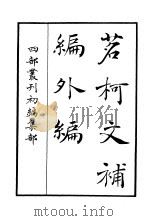 茗柯文補
編外編
四部叢刊初編集部